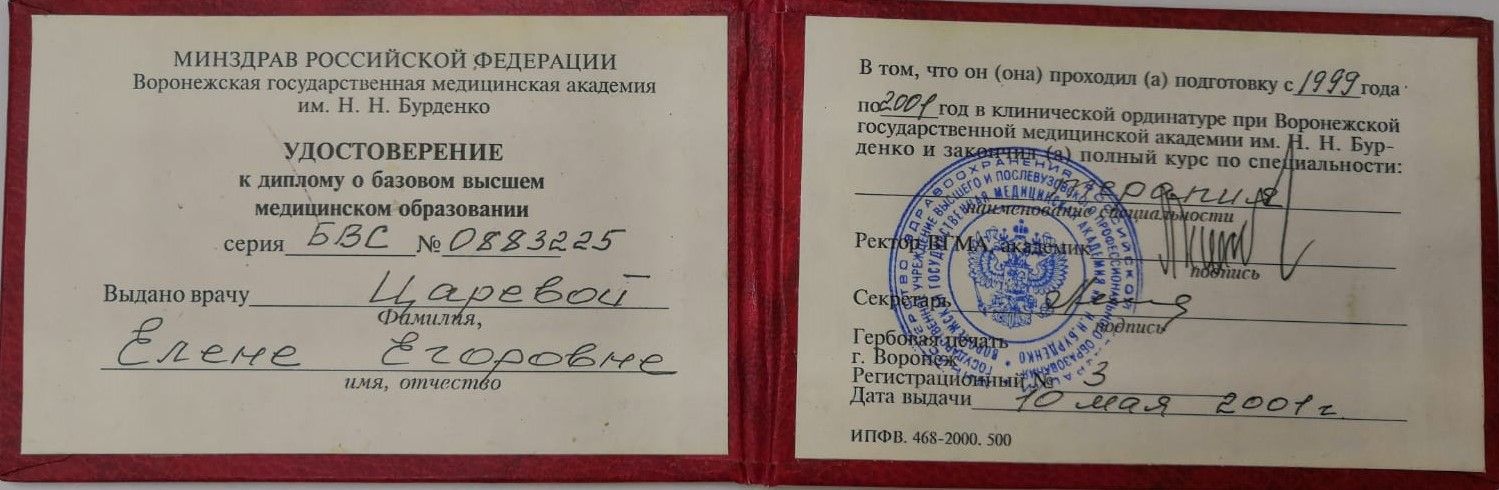 МИНЗДРАВ РОССИЙСКОЙ ФЕДЕРАЦИИ
Воронежская государственная медицинская академия
им. Н. Н. Бурденко
УДОСТОВЕРЕНИЕ
к диплому о базовом высшем
медицинском образовании
серия БВС № 0883225
Выдано врачу Царевой
Фамилия,
Елене Егоровне
имя, отчество
В том, что он (она) проходил (а) подготовку с 1999 года
по 2001 год в клинической ординатуре при Воронежской
государственной медицинской академии им. Н. Н. Бур-
денко и закончил (а) полный курс по специальности:
терапия
наименование специальности
Ректор ВГМА, академик
подпись
Секретарь
подпись
Гербовая печать
г. Воронеж
Регистрационный № 3
Дата выдачи 10 мая 2001 г.
ИПФВ. 468-2000. 500